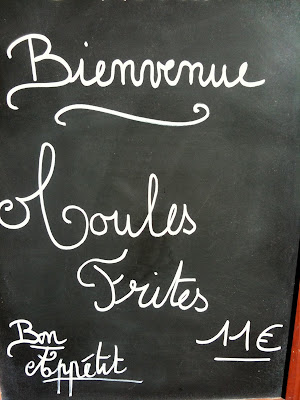 Bienvenue
Moules
Frites
11€
Bon
Appétit